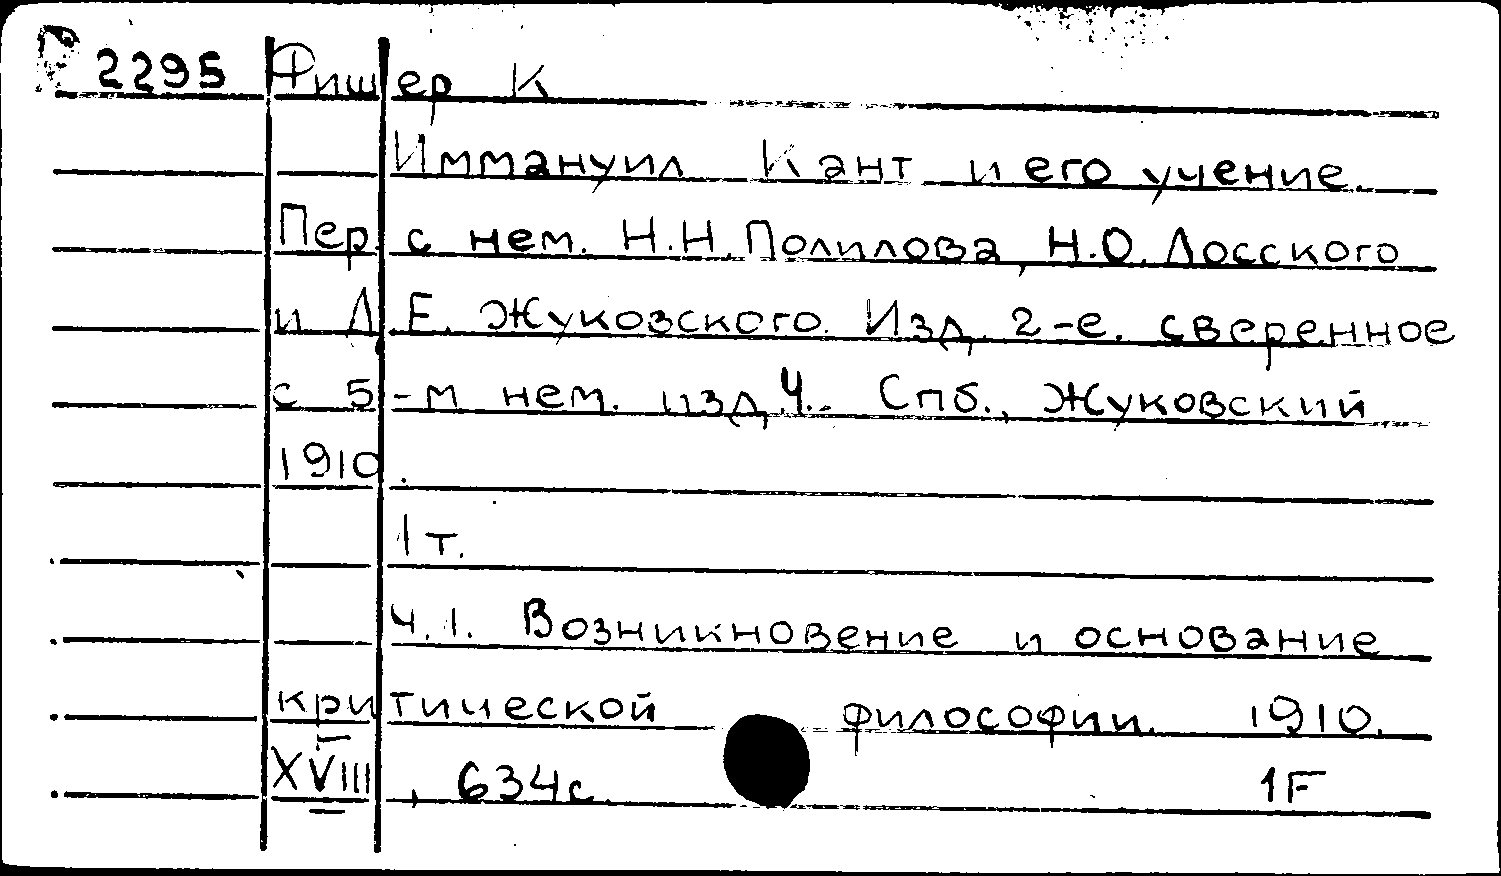 2295 Фишер К
Иммануил Кант и его учение.
Пер. с нем. Н.Н. Полилова, Н.О. Лосского
и Д.Е. Жуковского. Изд. 2-е. сверенное
с 5-м нем. изд. Ч. Спб., Жуковский
1910.
1 т.
Ч.1. Возникновение и основание
критической философии. 1910.
XVIII, 634с. 1F